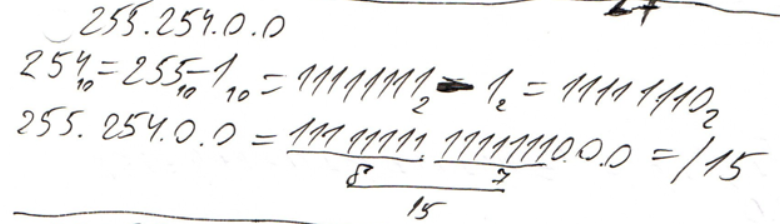 255.254.0.0
254₁₀=255₁₀-1₁₀=11111111₂-1₂=11111110₂
255.254.0.0=11111111.11111110.0.0=/15
8 7
15